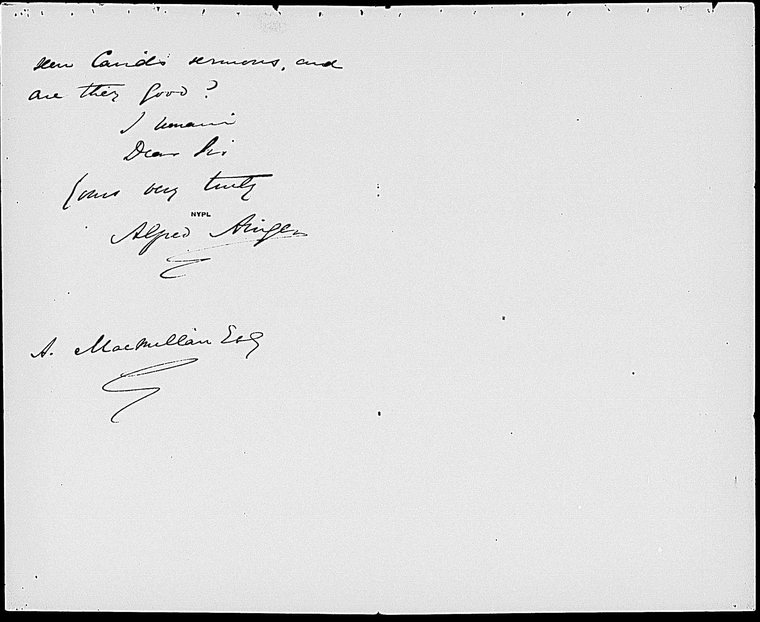 seen Caird's sermons, and
are they good?
I remain
Dear Sir
Yours very truly
NYPL
Alfred Ainger
A. Macmillan Esq